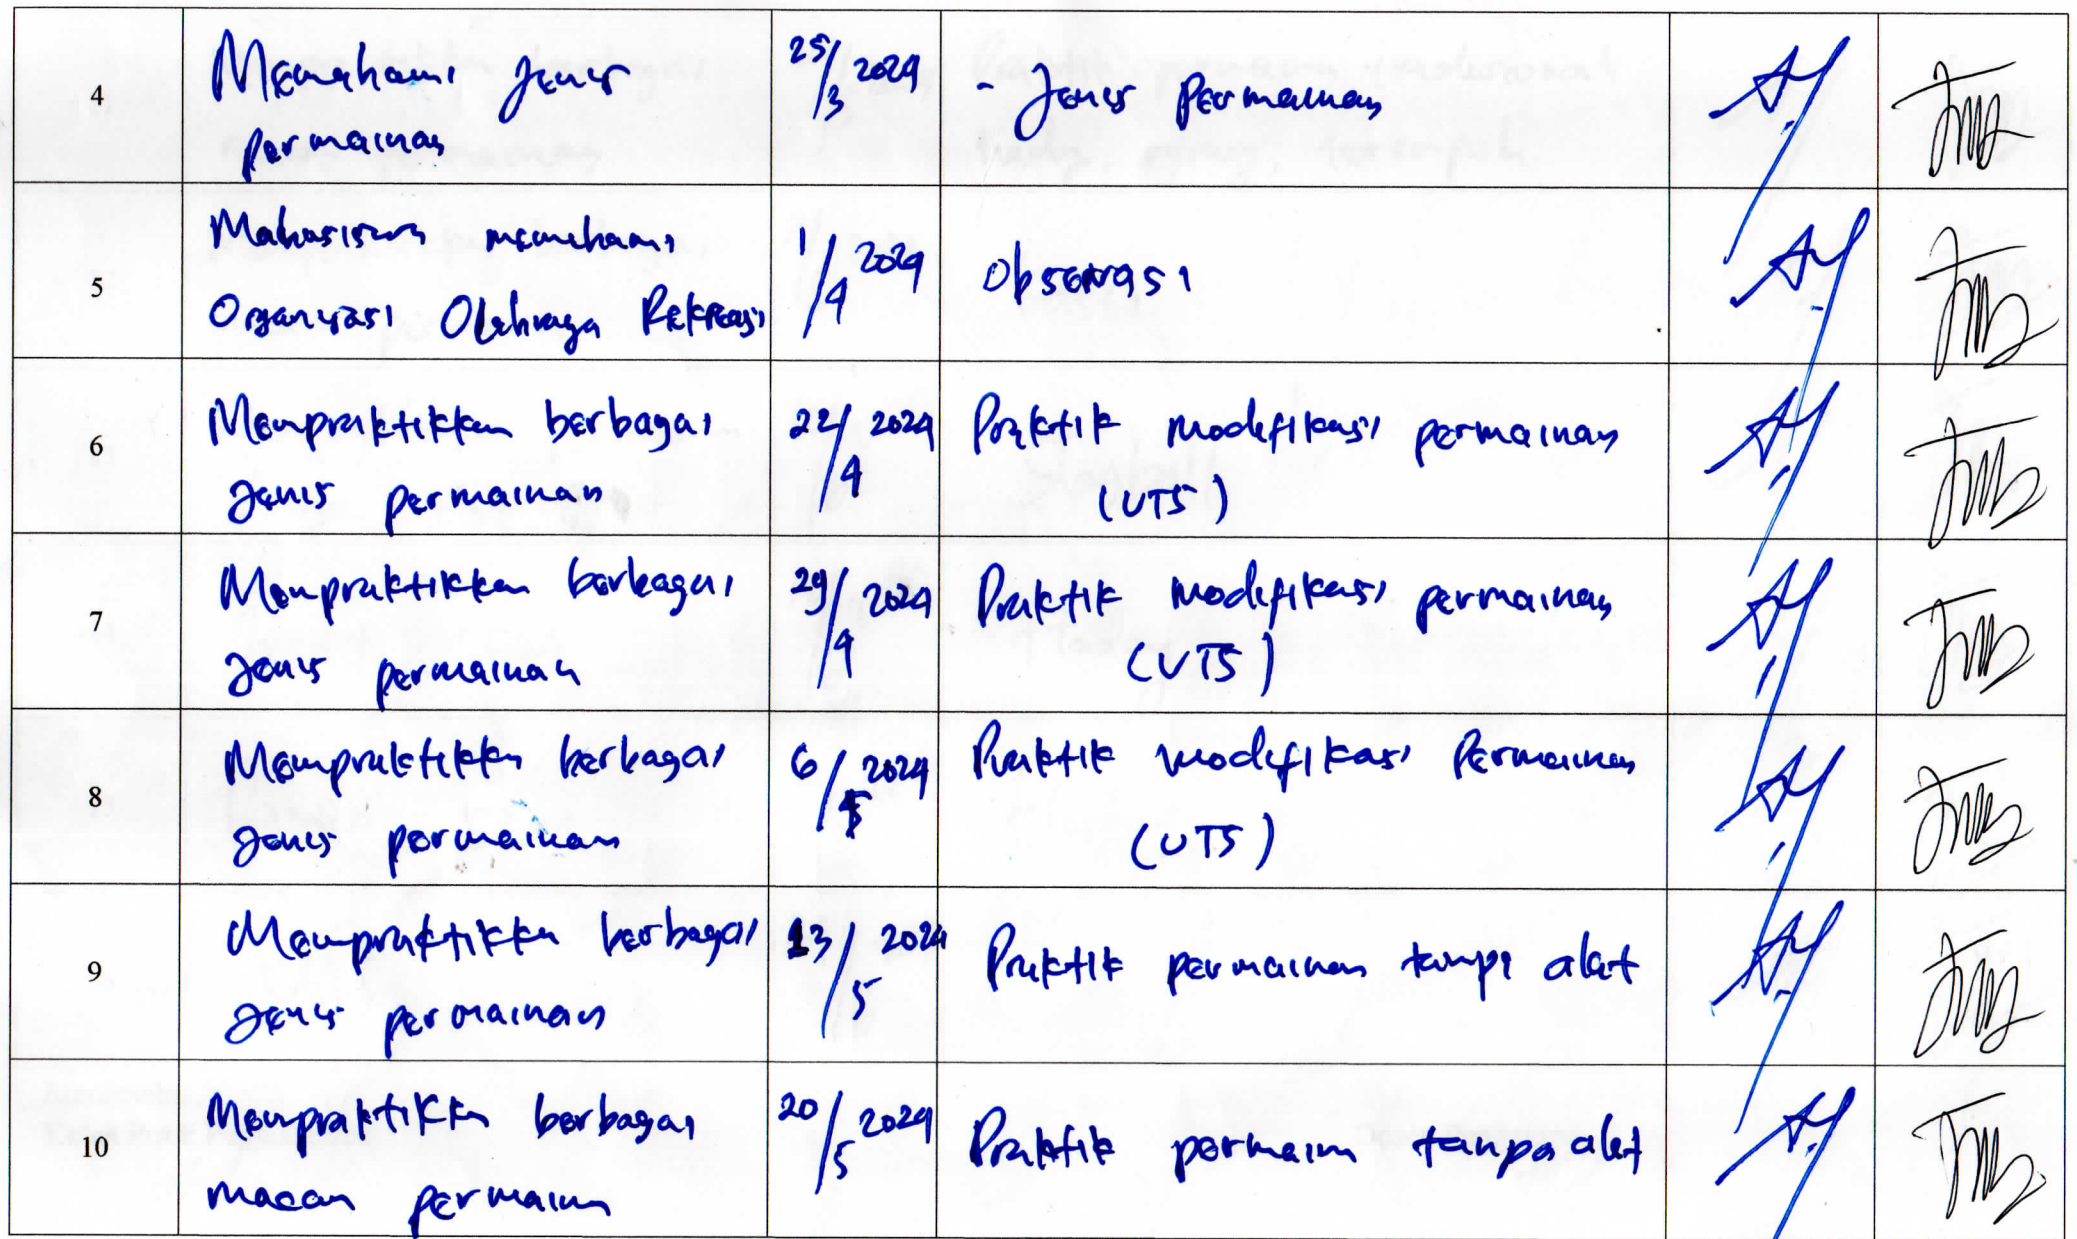 4
Memahami jenis
permainan
25/3 2024
- Jenis permainan
5
Mahasiswa memahami
Organisasi Olahraga Rekreasi
1/4 2024
Observasi
6
Mempraktikkan berbagai
jenis permainan
22/4 2024
Praktik modifikasi permainan
(UTS)
7
Mempraktikkan berbagai
jenis permainan
29/4 2024
Praktik modifikasi permainan
(UTS)
8
Mempraktikkn berbagai
jenis permainan
6/5 2024
Praktik modifikasi Permainan
(UTS)
9
Mempraktikkn berbagai
jenis permainan
13/5 2024
Praktik permainan tanpa alat
10
Mempraktikkn berbagai
macam permainn
20/5 2024
Praktik permainn tanpa alat